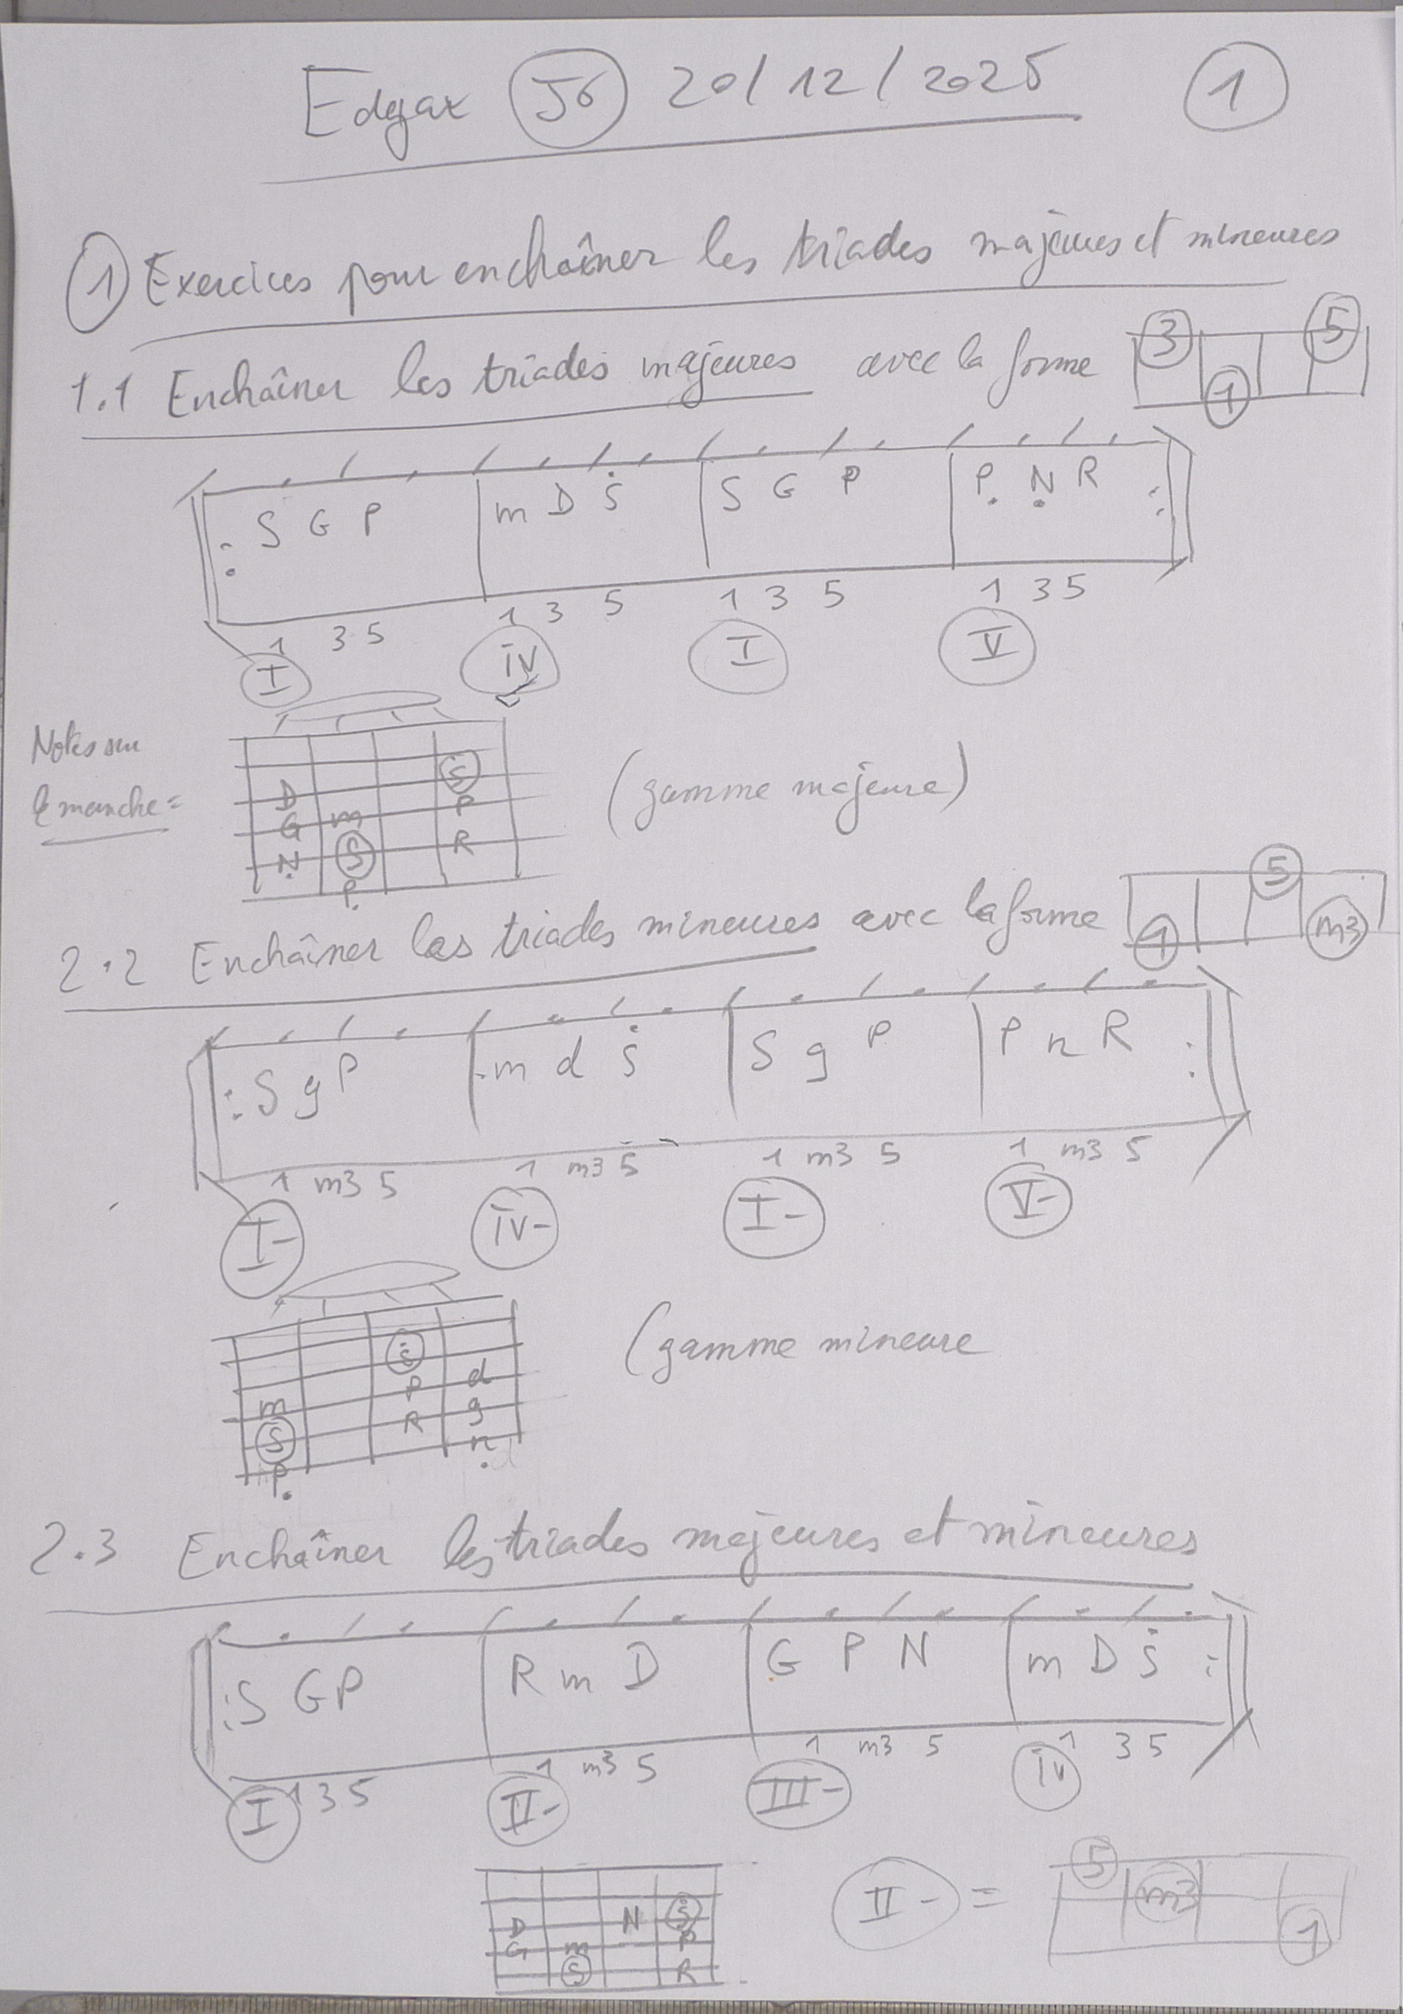 Edgar J6 20/12/2025 1
1 Exercices pour enchaîner les triades majeures et mineures
1.1 Enchaîner les triades majeures avec la forme 3 1 5
: S G P | m D Ṡ | S G P | P̣ Ṇ R :
1 3 5 1 3 5 1 3 5 1 3 5
I iv I V
Notes sur
le manche =
(gamme majeure)
Ṡ
D P
G m
N S R
P̣
2.2 Enchaîner les triades mineures avec la forme 1 5 m3
: S g P | m d ṡ | S g P | P n R :
1 m3 5 1 m3 5 1 m3 5 1 m3 5
I- iv- I- V-
(gamme mineure
ṡ
P d
m R g
S ṇ
P̣
2.3 Enchaîner les triades majeures et mineures
: S G P | R m D | G P N | m D ṡ :
1 3 5 1 m3 5 1 m3 5 1 3 5
I II- III- iv
D N ṡ
G m P
S R
II- = 5 m3 1